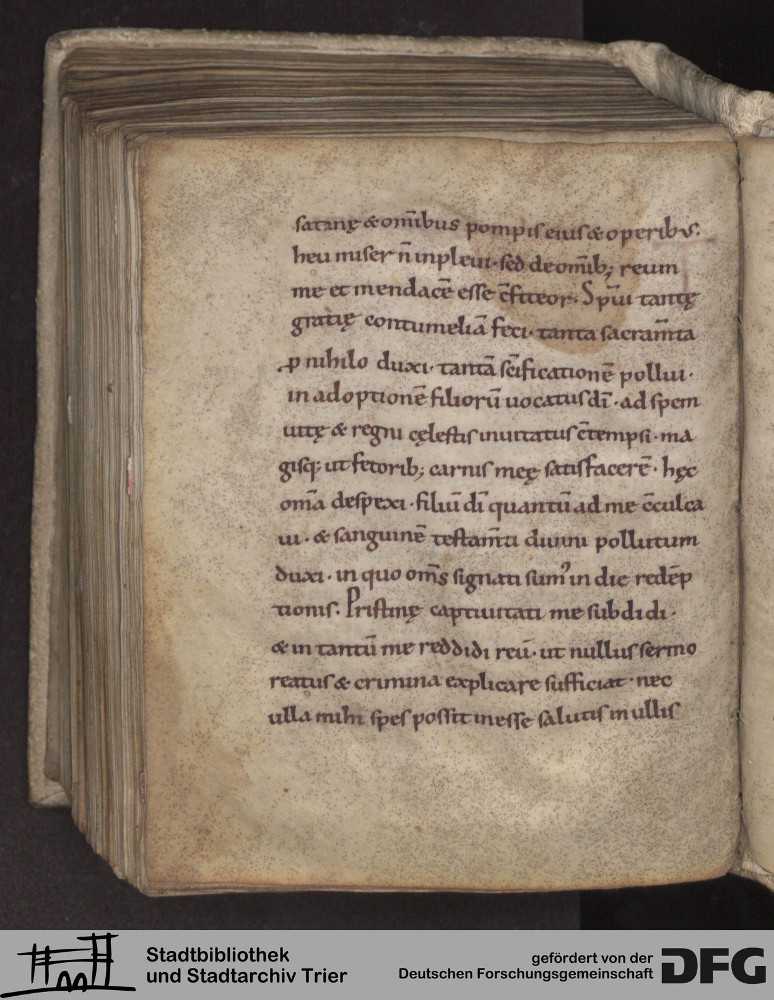 satanę & om̄ibus pompis eius & operibus.
heu miser n̄ inpleui· sed de om̄ib; reum
me et mendacē esse c̄fiteor. Sp̄ui tantę
gratię contumeliā feci· tanta sacram̄ta
ꝓ nihilo duxi· tantā sc̄ificationē pollui·
in adoptionē filiorū uocatus dī· ad spem
uitę & regni cęlestis inuitatus c̄tempsi· ma
gisq; ut fetorib; carnis meę satisfacerē· hęc
om̄a despexi· filiū dī quantū ad me c̄culca
ui· & sanguinē testam̄ti diuini pollutum
duxi· in quo om̄s signati sumꝰ in die redēp
tionis. Pristinę captiuitati me subdidi·
& in tantū me reddidi reū· ut nullus sermo
reatus & crimina explicare sufficiat· nec
ulla mihi spes possit inesse salutis in ullis
Stadtbibliothek
und Stadtarchiv Trier
gefördert von der
Deutschen Forschungsgemeinschaft
DFG